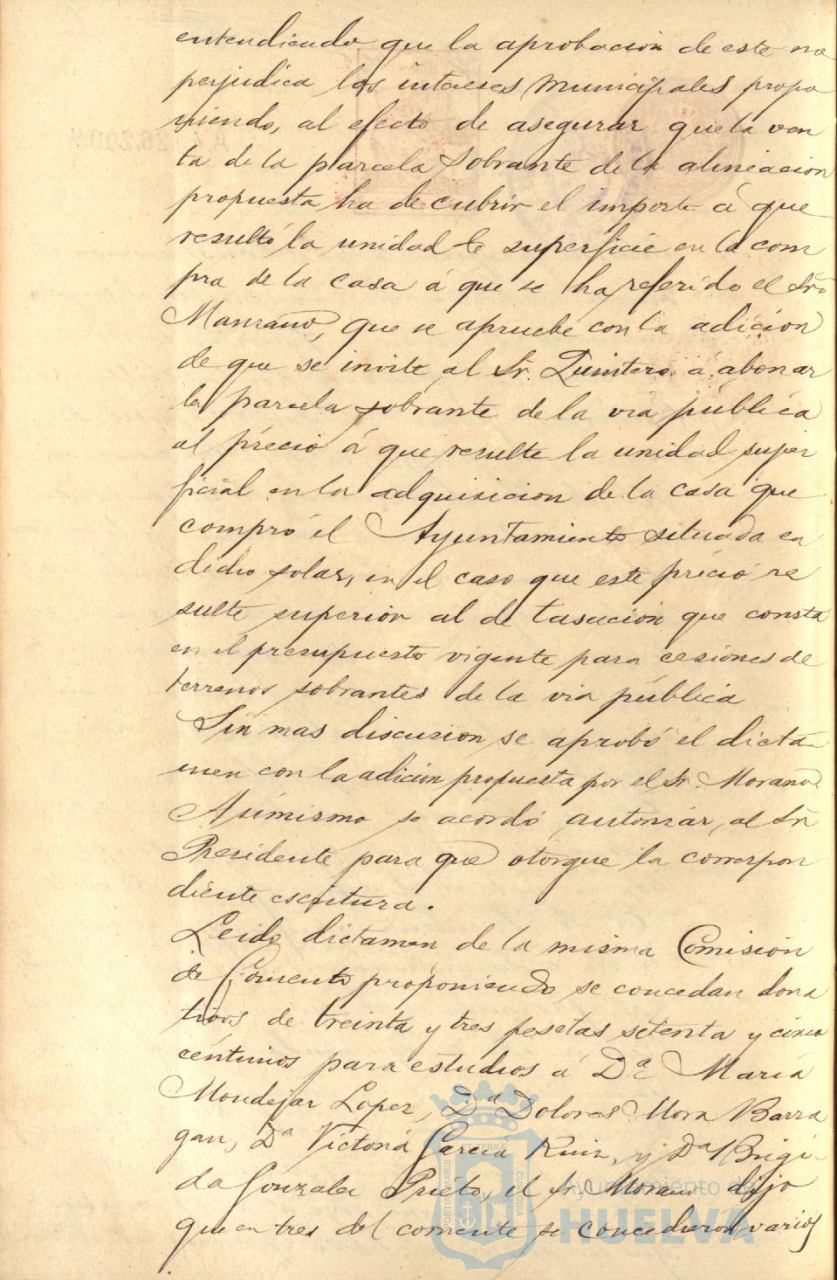 entendiendo que la aprobación de este no
perjudica los intereses municipales propo
niendo, al efecto de asegurar que la ven
ta de la parcela sobrante de la alineacion
propuesta ha de cubrir el importe á que
resultó la unidad de superficie en la com
pra de la casa á que se ha referido el Sr.
Manzano, que se apruebe con la adicion
de que se invite al Sr. Quintero á abonar
la parcela sobrante de la via pública
al précio á que resulte la unidad super
ficial en la adquisicion de la casa que
compró el Ayuntamiento situada en
dicho solar, en el caso que este précio re
sulte superior al de tasación que consta
en el presupuesto vigente para cesiones de
terrenos sobrantes de la via pública
Sin mas discusion se aprobó el dictá
men con la adición propuesta por el Sr. Morano.
Asimismo se acordó autorizar al Sr.
Presidente para que otorgue la correspon
diente escritura.
Leido dictamen de la misma Comisión
de Fomento proponiendo se concedan dona
tivos de treinta y tres pesetas setenta y cinco
céntimos para estudios á Dª María
Mondejar Lopez, Dª Dolores Mora Barra
gan, Dª Victoria García Ruiz, y Dª Brigi
da Gonzalez Prieto, el Sr. Morano dijo
que en tres del corriente se concedieron varios
Ayuntamiento de
HUELVA